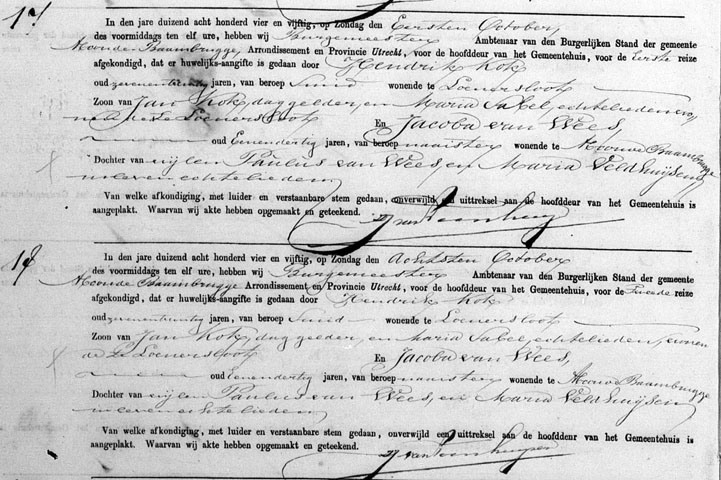 17
In den jare duizend acht honderd vier en vijftig, op Zondag den Eersten October,
des voormiddags ten elf ure, hebben wij Burgemeester Ambtenaar van den Burgerlijken Stand der gemeente
Baambrugge Arrondissement en Provincie Utrecht, voor de hoofddeur van het Gemeentehuis, voor de Eerste reize
afgekondigd, dat er huwelijks-aangifte is gedaan door Hendrik Kok
oud zevenentwintig jaren, van beroep Smid wonende te Loenersloot
Zoon van Jan Kok, daggelder, en Maria Sabel, echtelieden,
te Loenersloot En Jacoba van Wees,
oud Eenendertig jaren, van beroep naaister wonende te Baambrugge
Dochter van wijlen Paulus van Wees, en Maria Veldhuijsen,
in leven echtelieden
Van welke afkondiging, met luider en verstaanbare stem gedaan, onverwijld een uittreksel aan de hoofddeur van het Gemeentehuis is
aangeplakt. Waarvan wij akte hebben opgemaakt en geteekend.
In den jare duizend acht honderd vier en vijftig, op Zondag den Achtsten October
des voormiddags ten elf ure, hebben wij Burgemeester Ambtenaar van den Burgerlijken Stand der gemeente
Baambrugge Arrondissement en Provincie Utrecht, voor de hoofddeur van het Gemeentehuis, voor de Tweede reize
afgekondigd, dat er huwelijks-aangifte is gedaan door Hendrik Kok
oud zevenentwintig jaren, van beroep Smid wonende te Loenersloot
Zoon van Jan Kok, daggelder, en Maria Sabel, echtelieden, wonen
de te Loenersloot En Jacoba van Wees,
oud Eenendertig jaren, van beroep naaister wonende te Baambrugge
Dochter van wijlen Paulus van Wees, en Maria Veldhuijsen
in leven echtelieden
Van welke afkondiging, met luider en verstaanbare stem gedaan, onverwijld een uittreksel aan de hoofddeur van het Gemeentehuis is
aangeplakt. Waarvan wij akte hebben opgemaakt en geteekend.